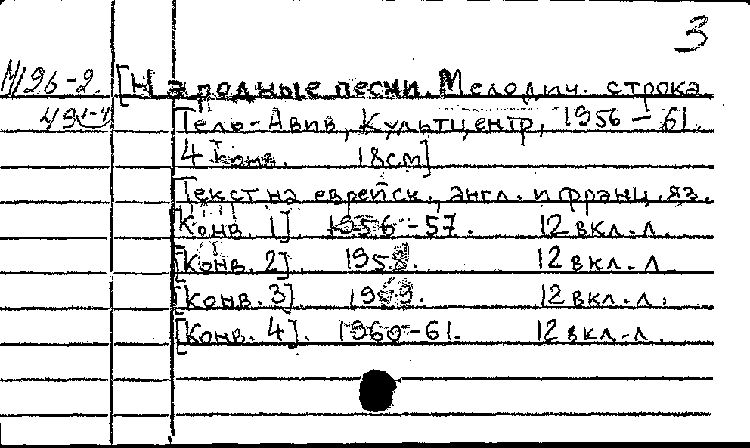 3
М196-2. [Народные песни. Мелодич. строка.
Тель-Авив, Культцентр, 1956-61.
4 конв. 18см]
Текст на еврейск., англ. и франц. яз.
[Конв. 1]. 1956-57. 12 вкл. л.
[Конв. 2]. 1958. 12 вкл. л.
[Конв. 3]. 1959. 12 вкл. л.
[Конв. 4]. 1960-61. 12 вкл. л.